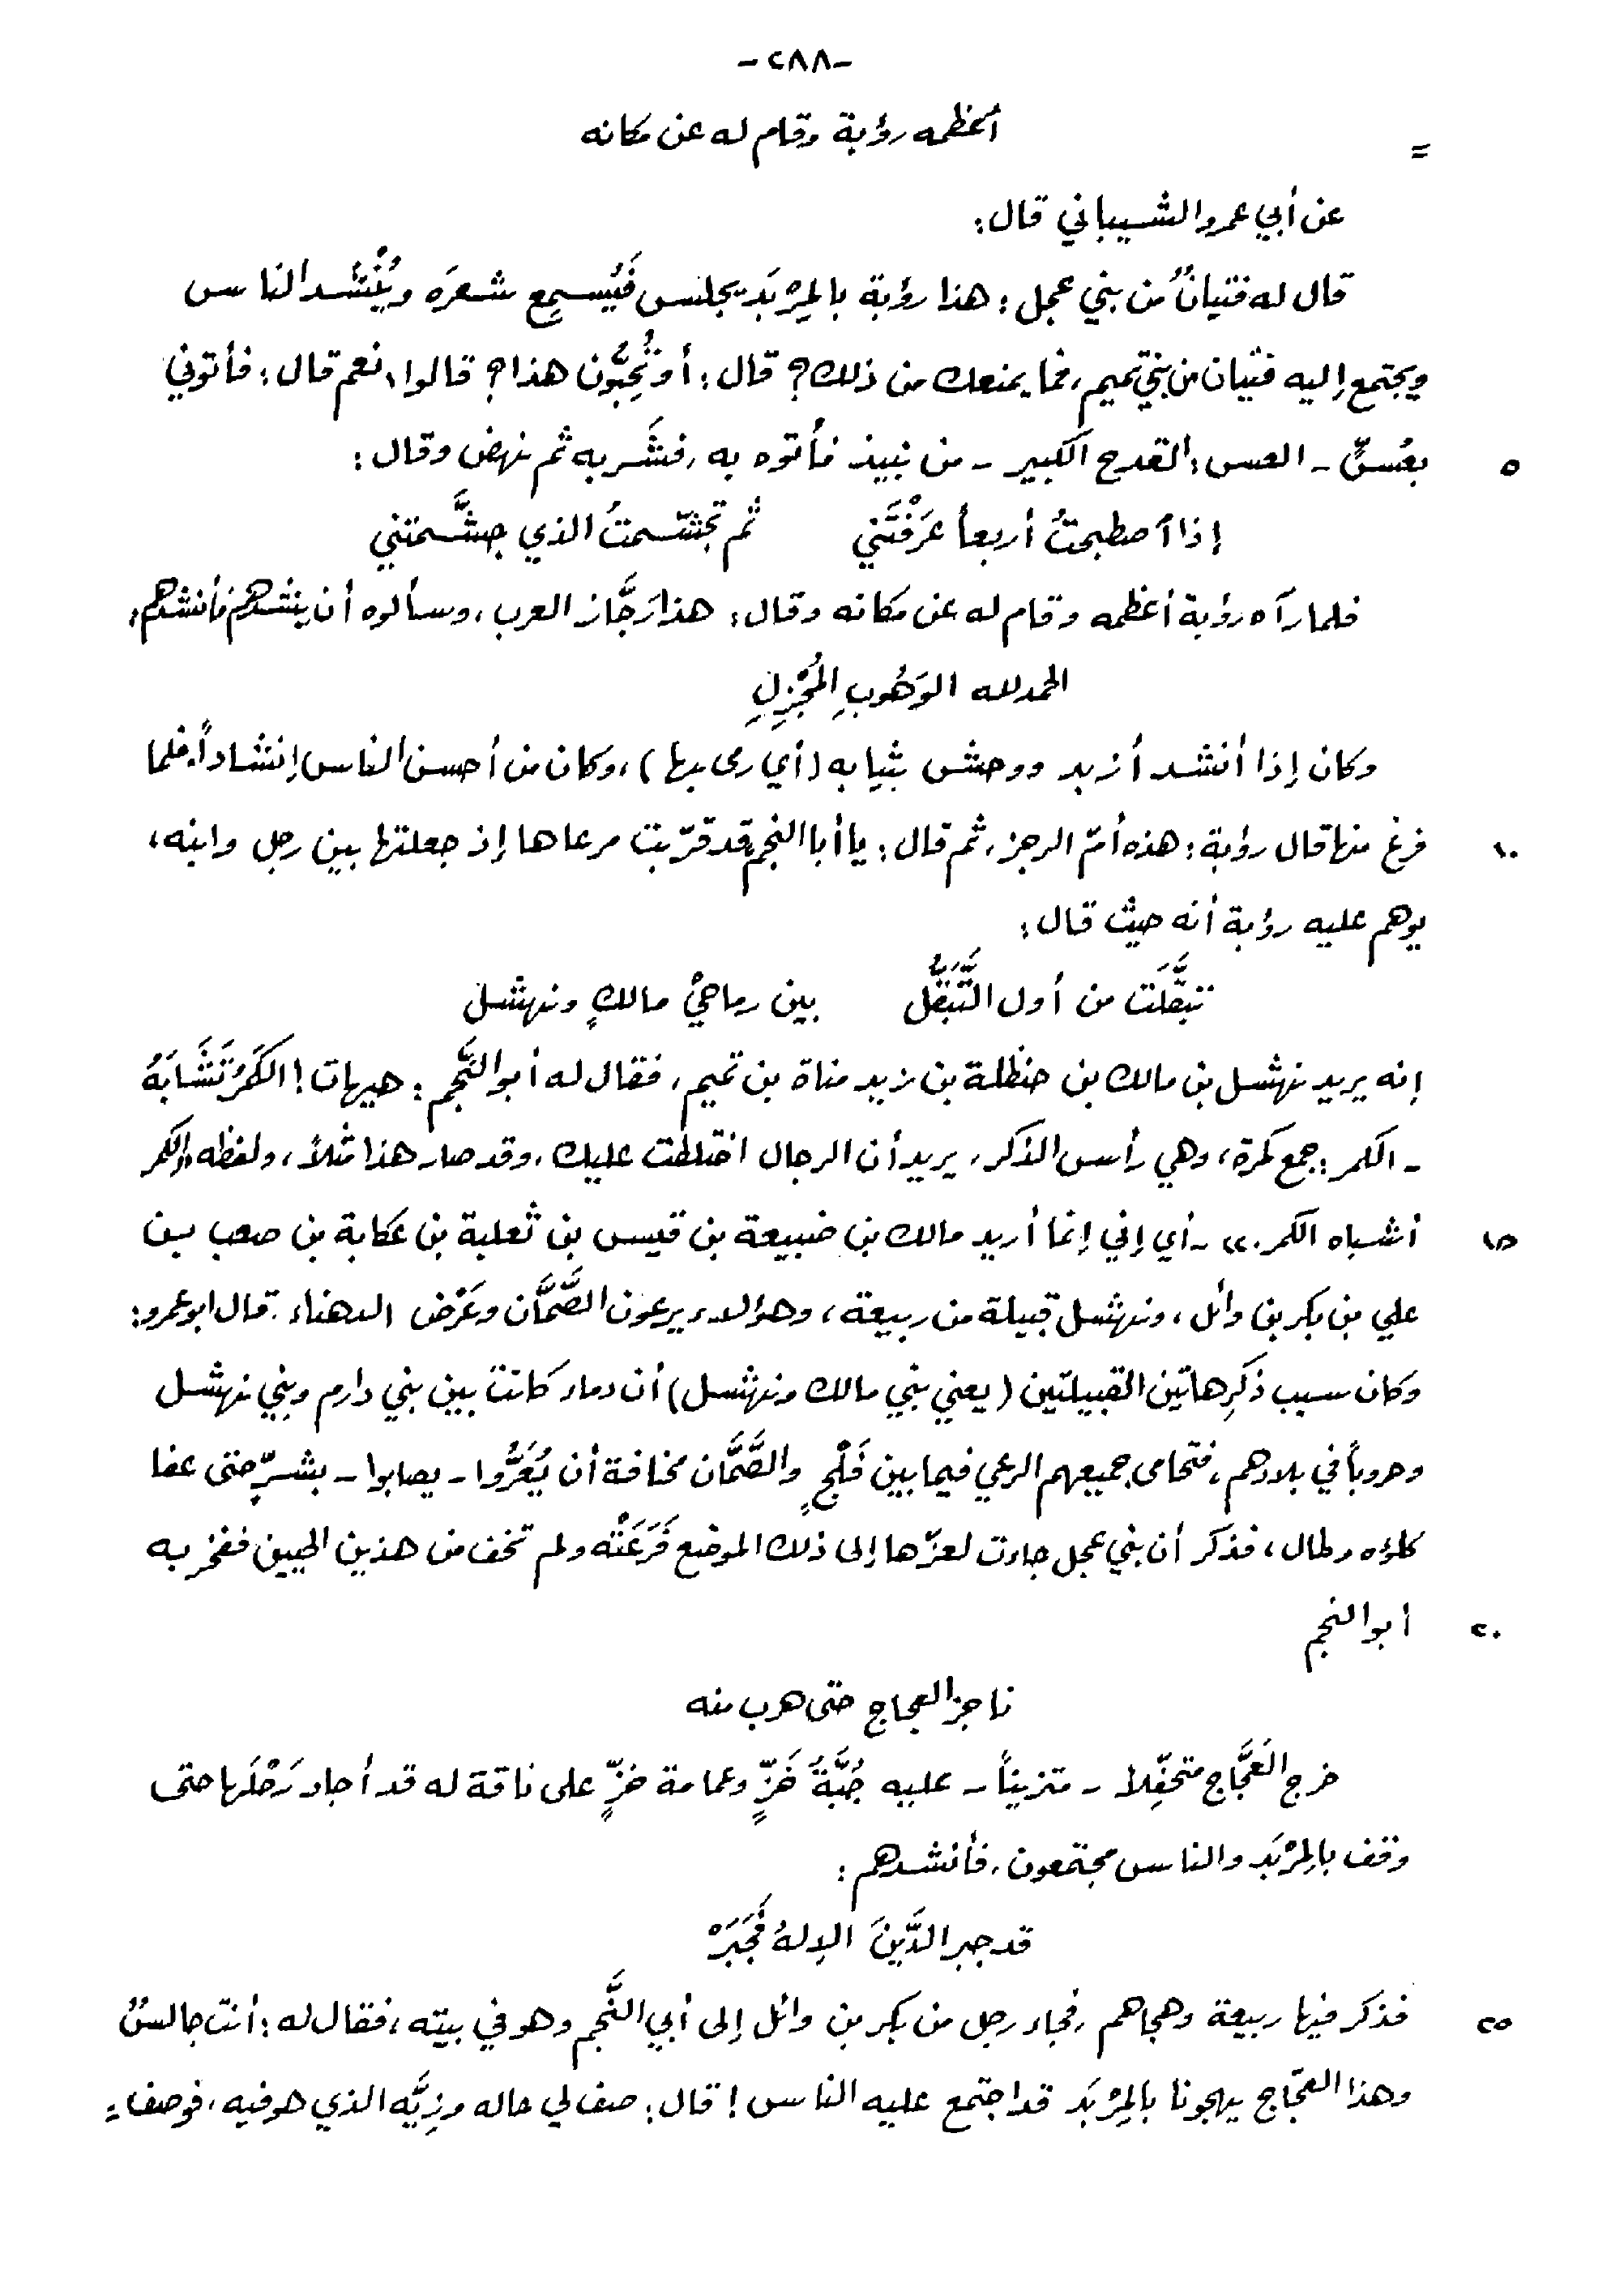 -٢٨٨-
= أعظمه رؤبة وقام له عن مكانه
عن أبي عمرو الشيباني قال:
قال له فتيانٌ من بني عجل: هذا رؤبة بالمِرْبَد يجلس فَيُسمِع شعرَه ويُنْشد الناس
ويجتمع إليه فتيان من بني تميم، فما يمنعك من ذلك؟ قال: أو تُحِبُّون هذا؟ قالوا، نعم قال: فأتوني
٥ بعُسٍّ - العس: القدح الكبير - من نبيذ فأتوه به، فشَربه ثم نهض وقال:
إذا أصطبحتُ أربعاً عَرَفْتَني ثم تجشّمتُ الذي جشَّمتني
فلما رآه رؤبة أعظمه وقام له عن مكانه وقال: هذا رَجَّاز العرب، وسألوه أن ينشدهم فأنشدهم:
الحمد لله الوَهُوبِ المُجْزِلِ
وكان إذا أنشد أزبد ووحش بثيابه (أي رمى بها)، وكان من أحسن الناس إنشاداً، فلما
١٠ فرغ منها قال رؤبة: هذه أمّ الرجز، ثم قال: يا أبا النجم قد قرّبت مرعاها إذ جعلتها بين رجل وابنه،
يوهم عليه رؤبة أنه حيث قال:
تبقَّلَت من أول التَّبَقُّل بين رماحيْ مالكٍ ونهشل
إنه يريد نهشل بن مالك بن حنظلة بن زيد مناة بن تميم، فقال له أبو النَّجم: هيهات! الكَمَرُ تَشَابَهُ
- الكمر: جمع كمرة، وهي رأس الذكر، يريد أن الرجال اختلطت عليك، وقد صار هذا مثلاً، ولفظه «الكمر
١٥ أشباه الكمر.» - أي إني إنما أريد مالك بن ضبيعة بن قيس بن ثعلبة بن عكابة بن صعب بن
علي بن بكر بن وائل، ونهشل قبيلة من ربيعة، وهؤلاء يرعون الصَّمَّان وعَرْض الدهناء. قال ابو عمرو:
وكان سبب ذكرِ هاتين القبيلتين (يعني بني مالك ونهشل) أن دماء كانت بين بني دارم وبني نهشل
وحروباً في بلادهم، فتحامى جميعهم الرعي فيما بين فَلْجٍ والصَّمَّان مخافة أن يُعَرُّوا - يصابوا - بشرٍّ حتى عفا
كلؤه وطال، فذكر أن بني عجل جاءت لعزّها إلى ذلك الموضع فَرَعَتْه ولم تخف من هذين الحيين ففخر به
٢٠ ابو النجم
ناجز العجاج حتى هرب منه
خرج العَجَّاج متحفّلاً - متزيناً - عليه جُبَّةُ خَزٍّ وعمامة خزٍّ على ناقة له قد أجاد رَحْلَها حتى
وقف بالمِرْبَد والناس مجتمعون، فأنشدهم:
قد جبر الدَّينَ الإلهُ فَجَبَرْ
٢٥ فذكر فيها ربيعة وهجاهم، فجاء رجل من بكر بن وائل إلى أبي النَّجم وهو في بيته، فقال له: أنت جالسٌ
وهذا العجّاج يهجونا بالمِرْبَد قد اجتمع عليه الناس! قال: صف لي حاله وزِيَّه الذي هو فيه، فوصف =